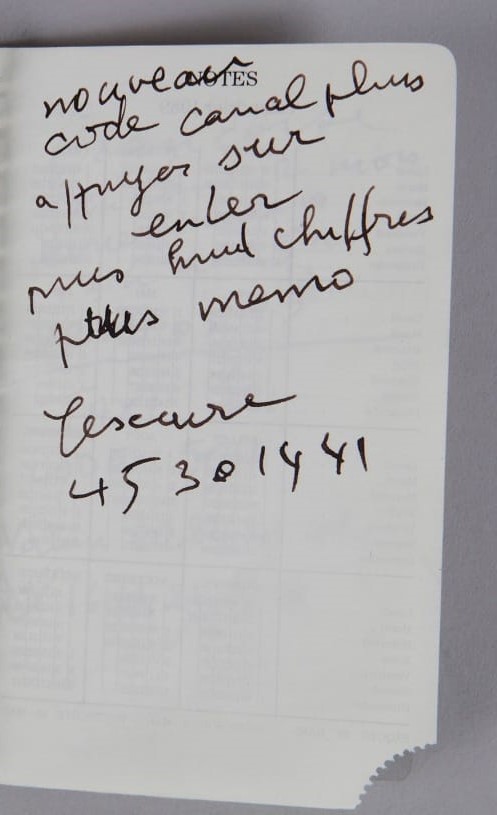 NOTES
nouveau
code canal plus
appuyer sur
enter
puis huit chiffres
plus memo
Lescure
45301441